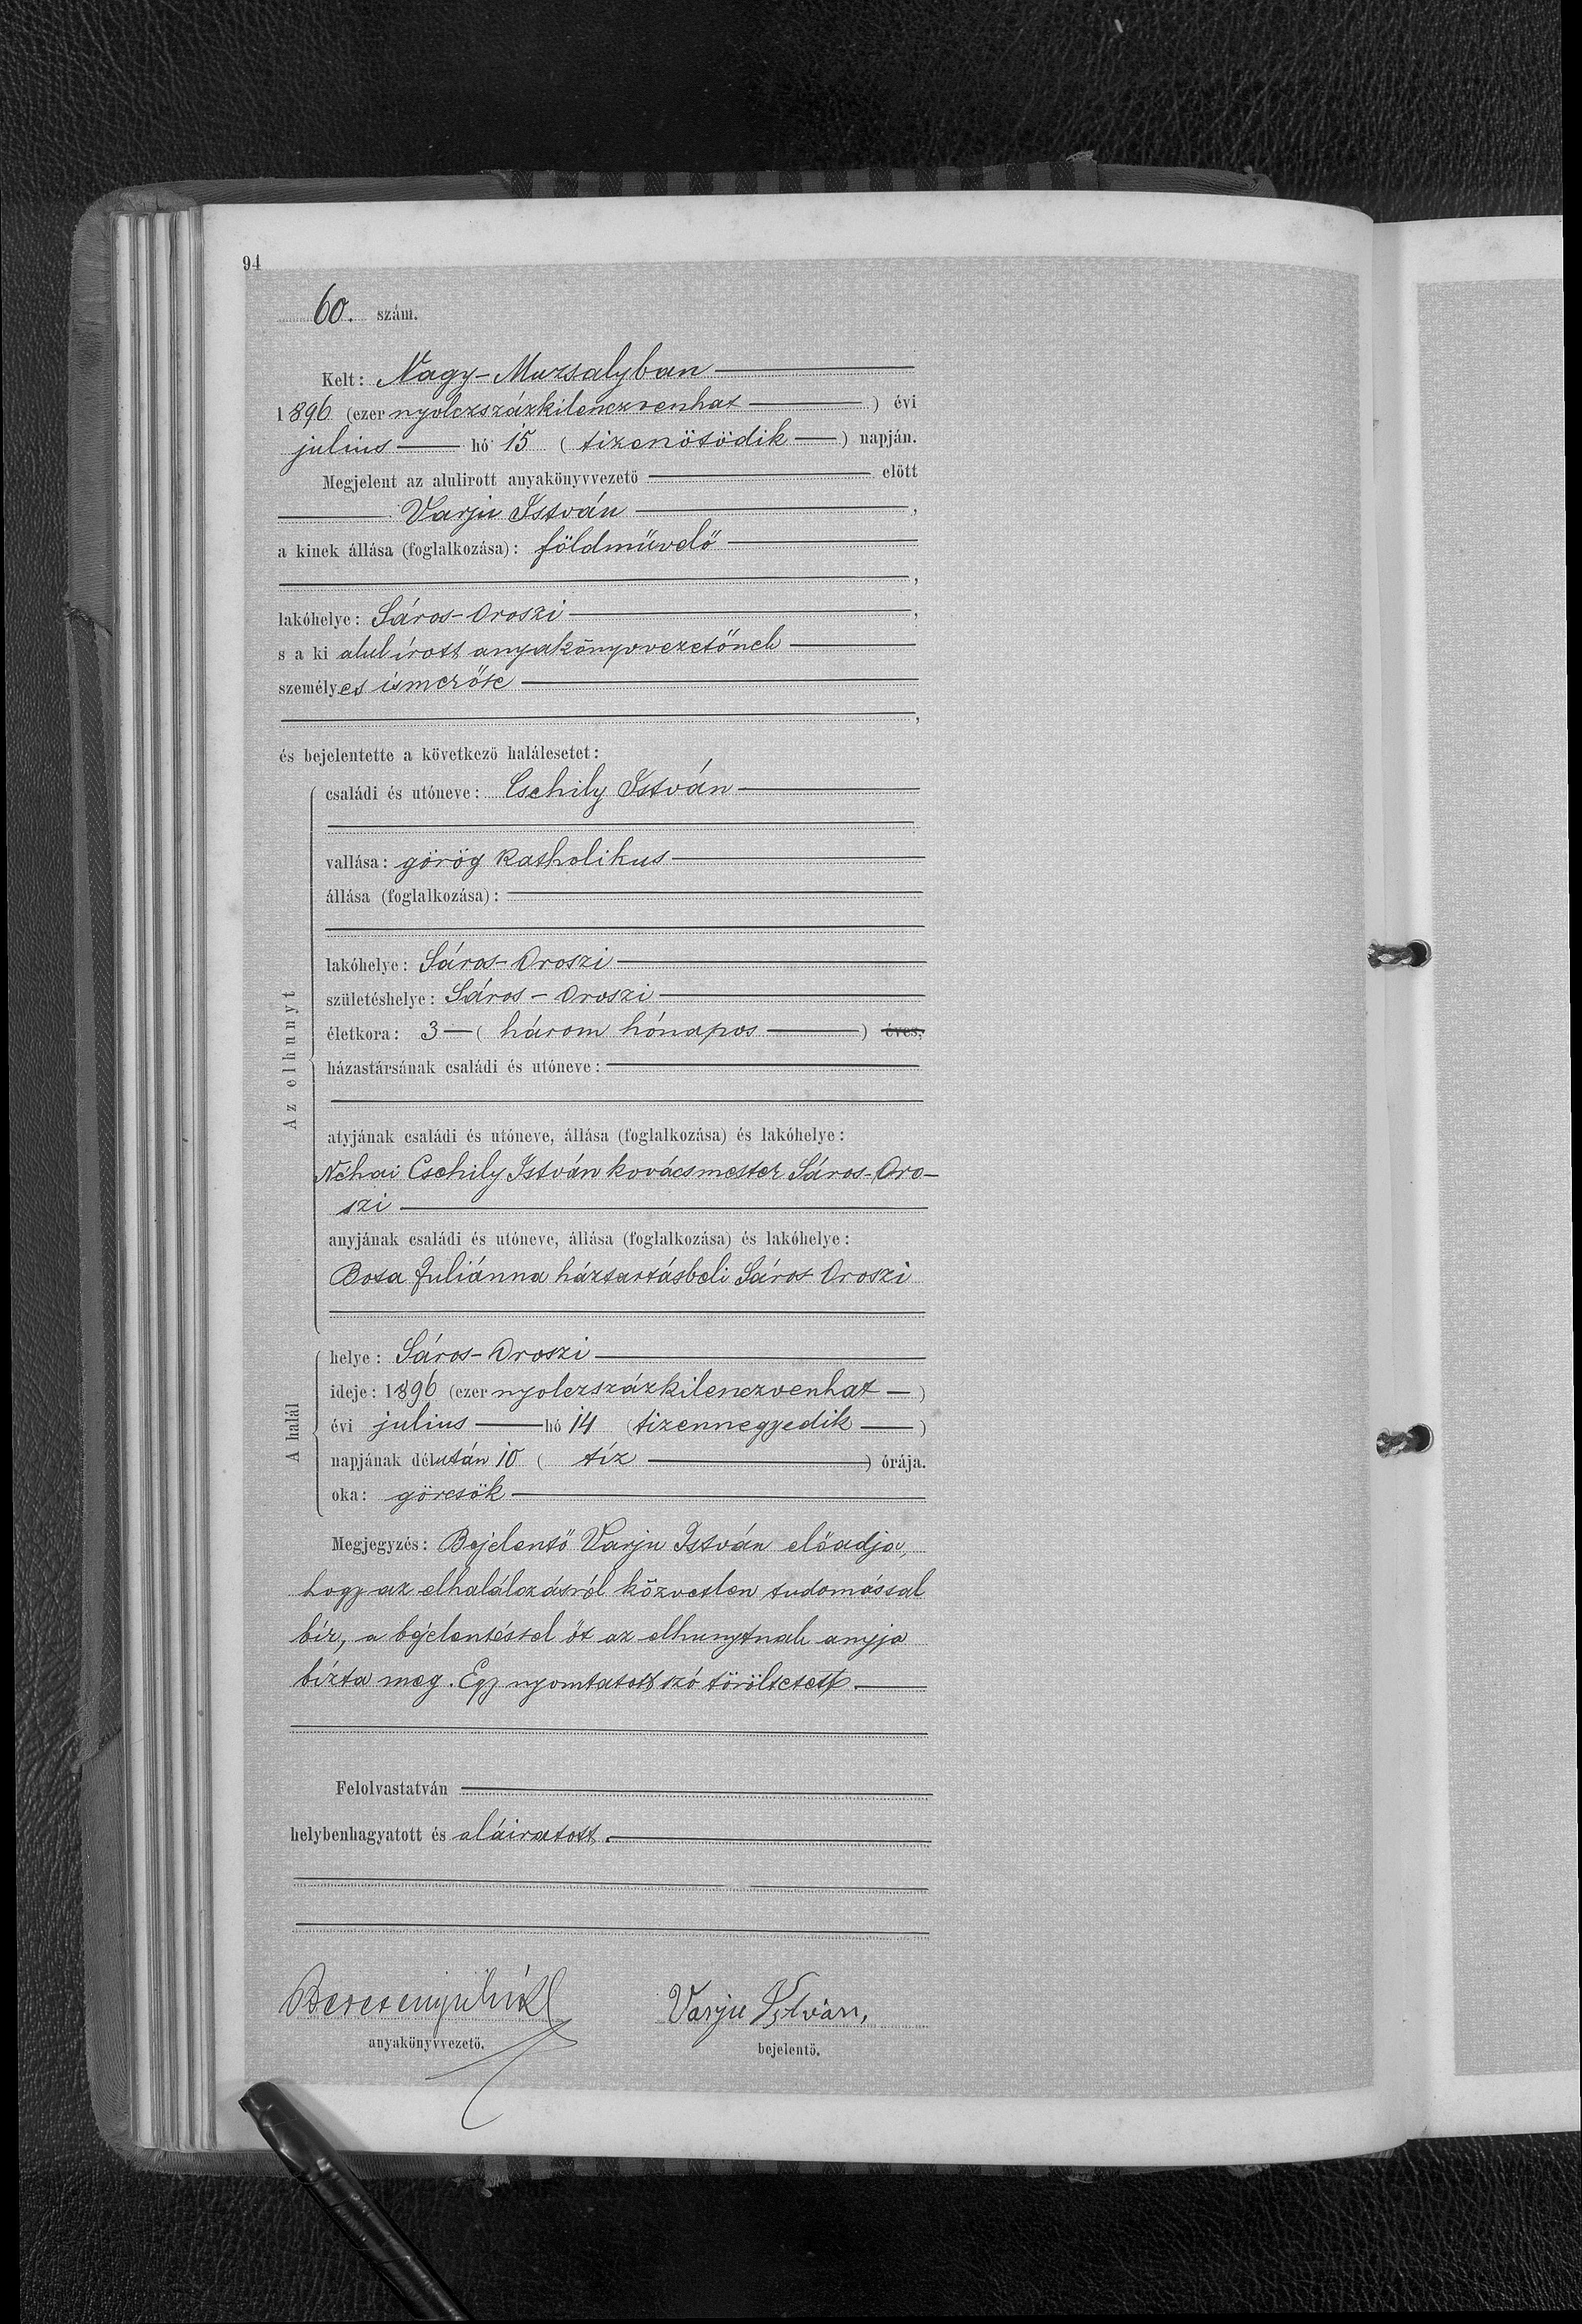 94
60. szám.
Kelt: Nagy-Muzsalyban
1896 (ezer nyolczszázkilenczvenhat) évi
julius hó 15 (tizenötödik) napján.
Megjelent az alulirott anyakönyvvezető előtt
Varju István,
a kinek állása (foglalkozása): földművelő
,
lakóhelye: Sáros-Oroszi,
s a ki alulírott anyakönyvvezetőnek
személyes ismerőse
,
és bejelentette a következő halálesetet:
Az elhunyt
családi és utóneve: Csehily István
vallása: görög katholikus
állása (foglalkozása):
lakóhelye: Sáros-Oroszi
születéshelye: Sáros-Oroszi
életkora: 3 (három hónapos) éves,
házastársának családi és utóneve:
atyjának családi és utóneve, állása (foglalkozása) és lakóhelye:
Néhai Csehily István kovácsmester Sáros-Oro-
szi
anyjának családi és utóneve, állása (foglalkozása) és lakóhelye:
Bota Juliánna háztartásbeli Sáros-Oroszi
A halál
helye: Sáros-Oroszi
ideje: 1896 (ezer nyolczszázkilenczvenhat)
évi julius hó 14 (tizennegyedik)
napjának délután 10 (tíz) órája.
oka: görcsök
Megjegyzés: Bejelentő Varju István előadja,
hogy az elhalálozásról közvetlen tudomással
bír, a bejelentéssel őt az elhunytnak anyja
bízta meg. Egy nyomtatott szó töröltetett.
Felolvastatván
helybenhagyatott és aláiratott.
Varju István,
anyakönyvvezető.
bejelentő.